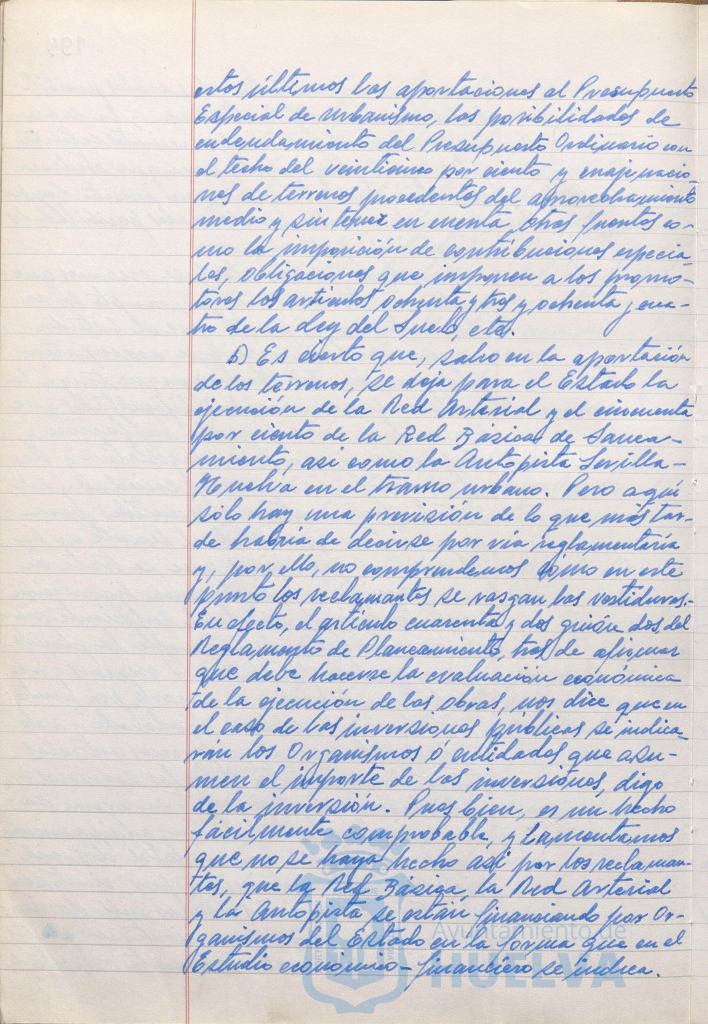 estos últimos las aportaciones al Presupuesto
Especial de Urbanismo, las posibilidades de
endeudamiento del Presupuesto Ordinario con
el techo del veinticinco por ciento y enajenacio-
nes de terrenos procedentes del aprovechamiento
medio y sin tener en cuenta otras fuentes co-
mo la imposición de contribuciones especia-
les, obligaciones que imponen a los promo-
tores los artículos ochenta y tres y ochenta y cua-
tro de la Ley del Suelo, etc.
6) Es cierto que, salvo en la aportación
de los terrenos, se deja para el Estado la
ejecución de la Red Arterial y el cincuenta
por ciento de la Red Básica de Sanea-
miento, así como la Autopista Sevilla-
Huelva en el tramo urbano. Pero aquí
sólo hay una previsión de lo que más tar-
de habría de decirse por vía reglamentaria
y, por ello, no comprendemos cómo en este
punto los reclamantes se rasgan las vestiduras.
En efecto, el artículo cuarenta y dos guión dos del
Reglamento de Planeamiento, tras de afirmar
que debe hacerse la evaluación económica
de la ejecución de las obras, nos dice que en
el caso de las inversiones públicas se indica-
rán los Organismos ó entidades que asu-
men el importe de las inversiones, digo
de la inversión. Pues bien, es un hecho
fácilmente comprobable, y lamentamos
que no se haya hecho así por los reclaman-
tes, que la Red Básica, la Red Arterial
y la Autopista se están financiando por Or-
ganismos del Estado en la forma que en el
Estudio económico-financiero se indica.
Ayuntamiento de
HUELVA